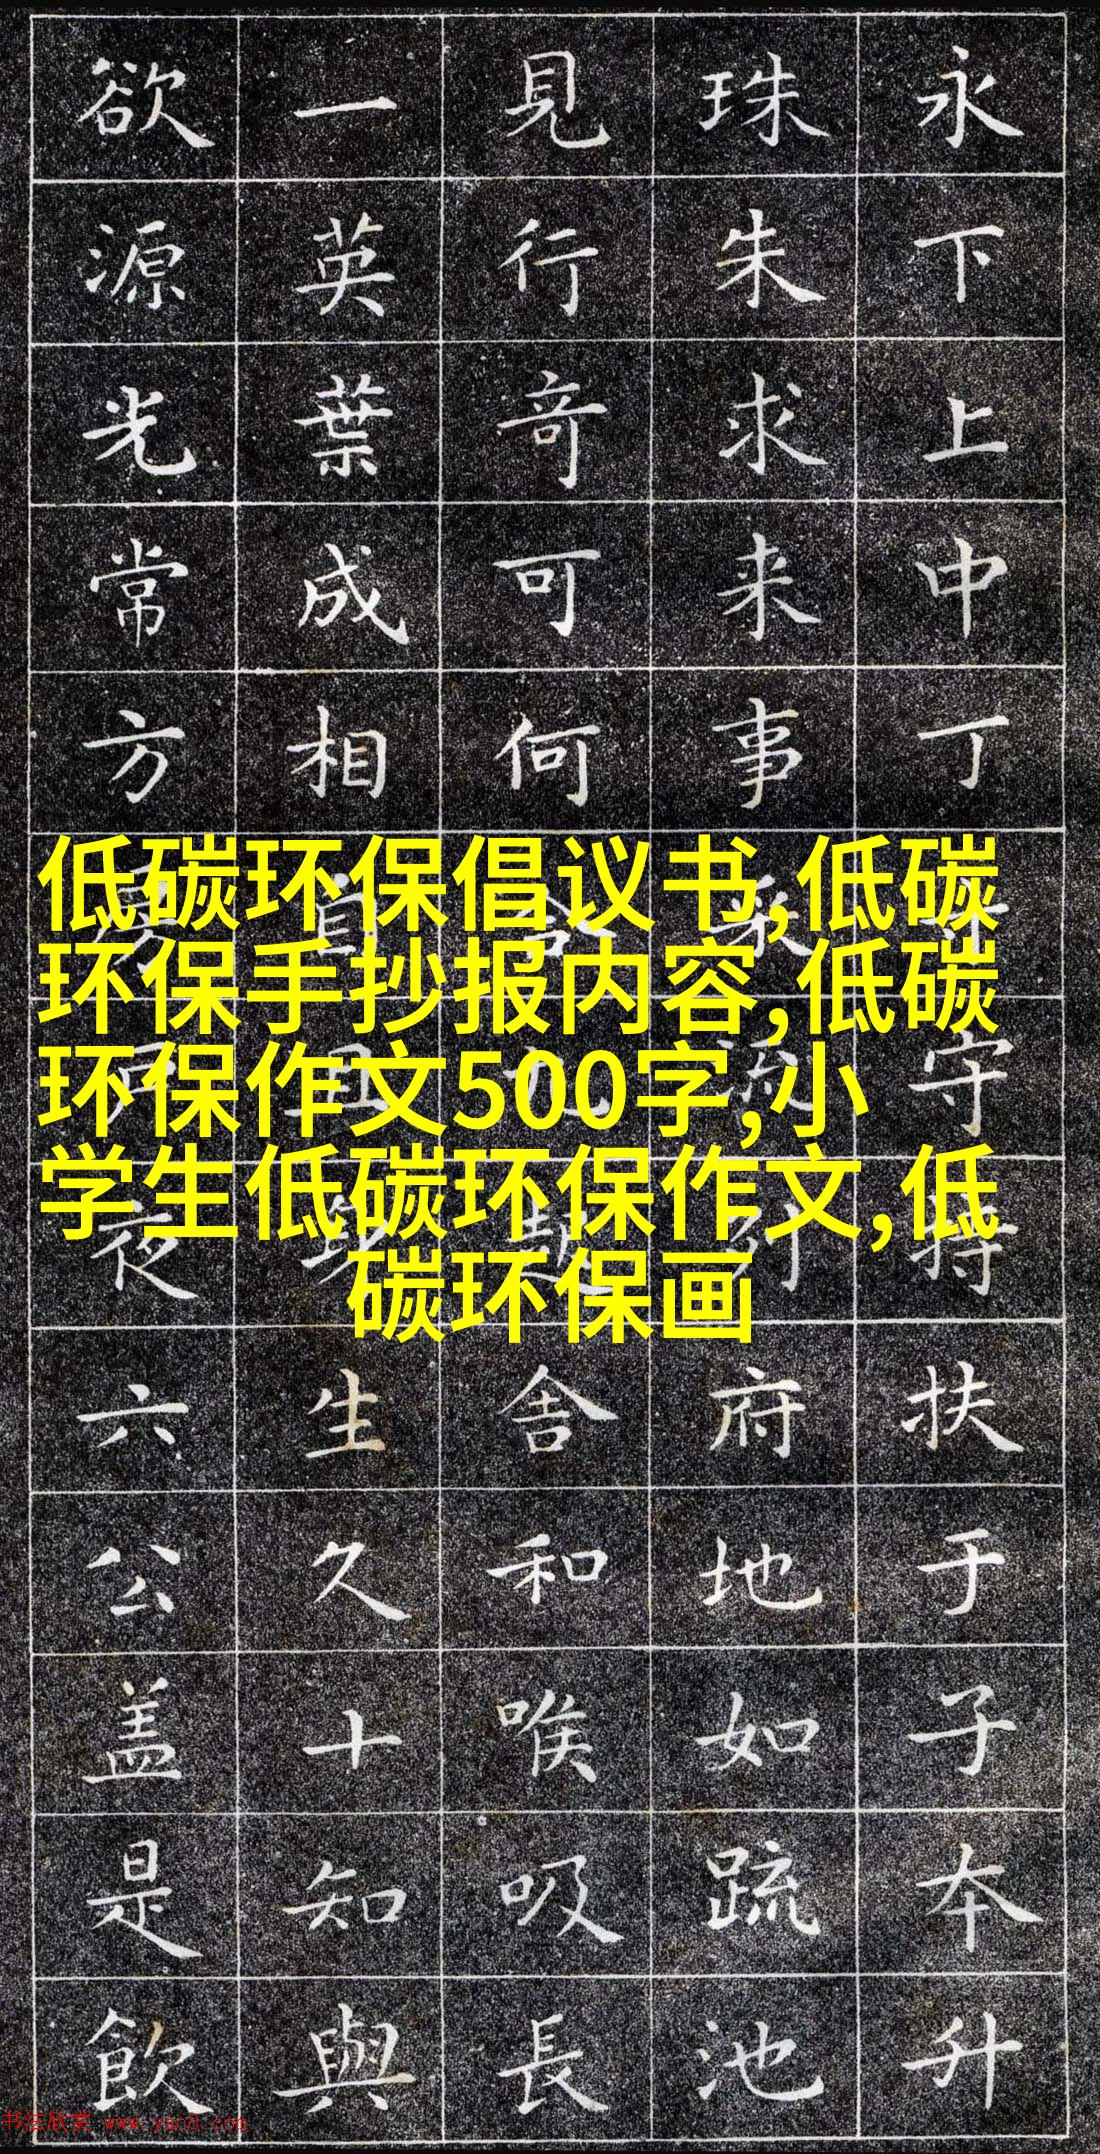 永下上中丁守持扶于子本升
珠朱求来事采流列府地如疏池
見行竒可何起舍和喉吸長
一英葉成相直且生久十知與
欲源光常方夜六公盖是飲
低碳环保倡议书,低碳
环保手抄报内容,低碳
环保作文500字,小
学生低碳环保作文,低
碳环保画
书法欣赏 www.yac8.com